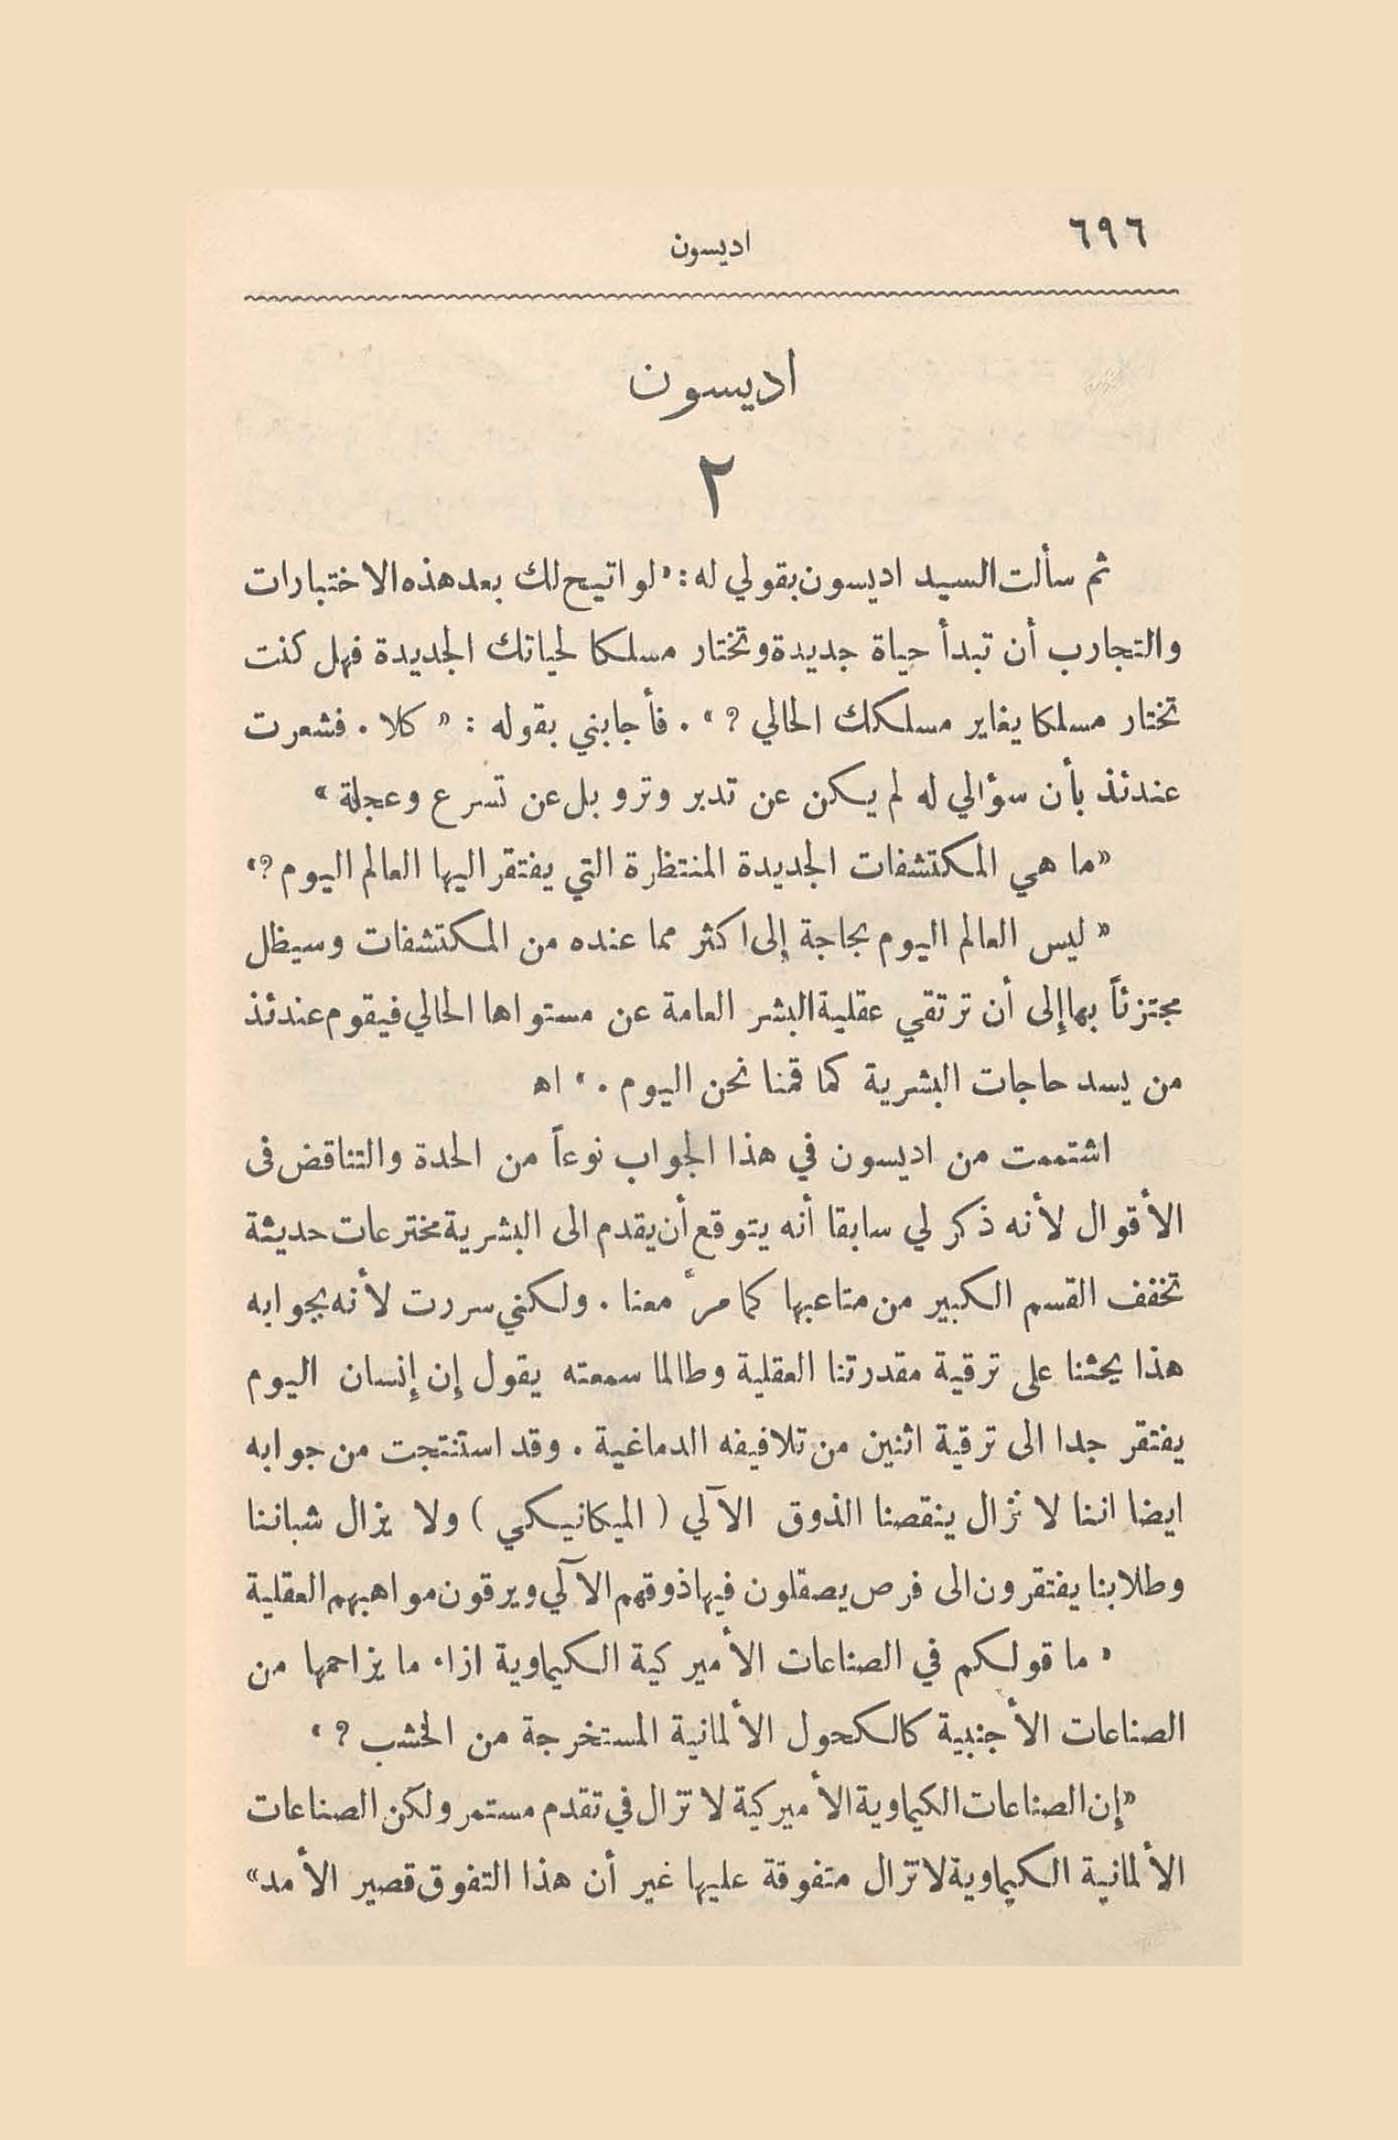 ٦٩٦
اديسون
اديسون
٢
ثم سألت السيد اديسون بقولي له: «لو اتيح لك بعد هذه الاختبارات
والتجارب أن تبدأ حياة جديدة وتختار مسلكا لحياتك الجديدة فهل كنت
تختار مسلكا يغاير مسلكك الحالي ?». فأجابني بقوله : « كلا . فشعرت
عندئذ بأن سؤالي له لم يكن عن تدبر وترو بل عن تسرع وعجلة »
«ما هي المكتشفات الجديدة المنتظرة التي يفتقر اليها العالم اليوم ?»
« ليس العالم اليوم بحاجة إلى اكثر مما عنده من المكتشفات وسيظل
مجتزئاً بها إلى أن ترتقي عقلية البشر العامة عن مستواها الحالي فيقوم عندئذ
من يسد حاجات البشرية كما قمنا نحن اليوم . » اه
اشتممت من اديسون في هذا الجواب نوعاً من الحدة والتناقض فى
الأقوال لأنه ذكر لي سابقا أنه يتوقع أن يقدم الى البشرية مخترعات حديثة
تخفف القسم الكبير من متاعبها كما مرَّ معنا . ولكني سررت لأنه بجوابه
هذا يحثنا على ترقية مقدرتنا العقلية وطالما سمعته يقول إن إنسان اليوم
يفتقر جدا الى ترقية اثنين من تلافيفه الدماغية . وقد استنتجت من جوابه
ايضا اننا لا نزال ينقصنا الذوق الآلي ( الميكانيكي ) ولا يزال شباننا
وطلابنا يفتقرون الى فرص يصقلون فيها ذوقهم الآلي ويرقون مواهبهم العقلية
« ما قولكم في الصناعات الأميركية الكيماوية ازاء ما يزاحمها من
الصناعات الأجنبية كالكحول الألمانية المستخرجة من الخشب ? »
«إن الصناعات الكيماوية الأميركية لا تزال في تقدم مستمر ولكن الصناعات
الألمانية الكيماوية لا تزال متفوقة عليها غير أن هذا التفوق قصير الأمد»